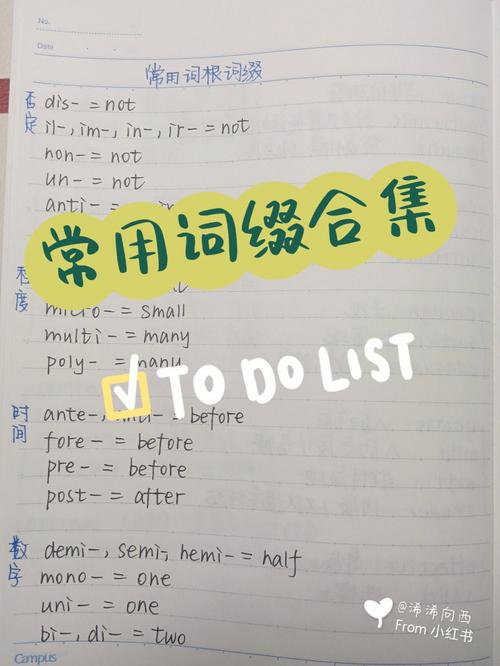 No.
Date
常用词根词缀
否定
dis- = not
il-, im-, in-, ir- = not
non- = not
un- = not
anti-
常用词缀合集
程度
micro- = small
multi- = many
poly- = many
TO DO LIST
时间
ante-, = before
fore- = before
pre- = before
post- = after
数字
demi-, semi-, hemi- = half
mono- = one
uni- = one
bi-, di- = two
@浠浠向西
From 小红书
Campus